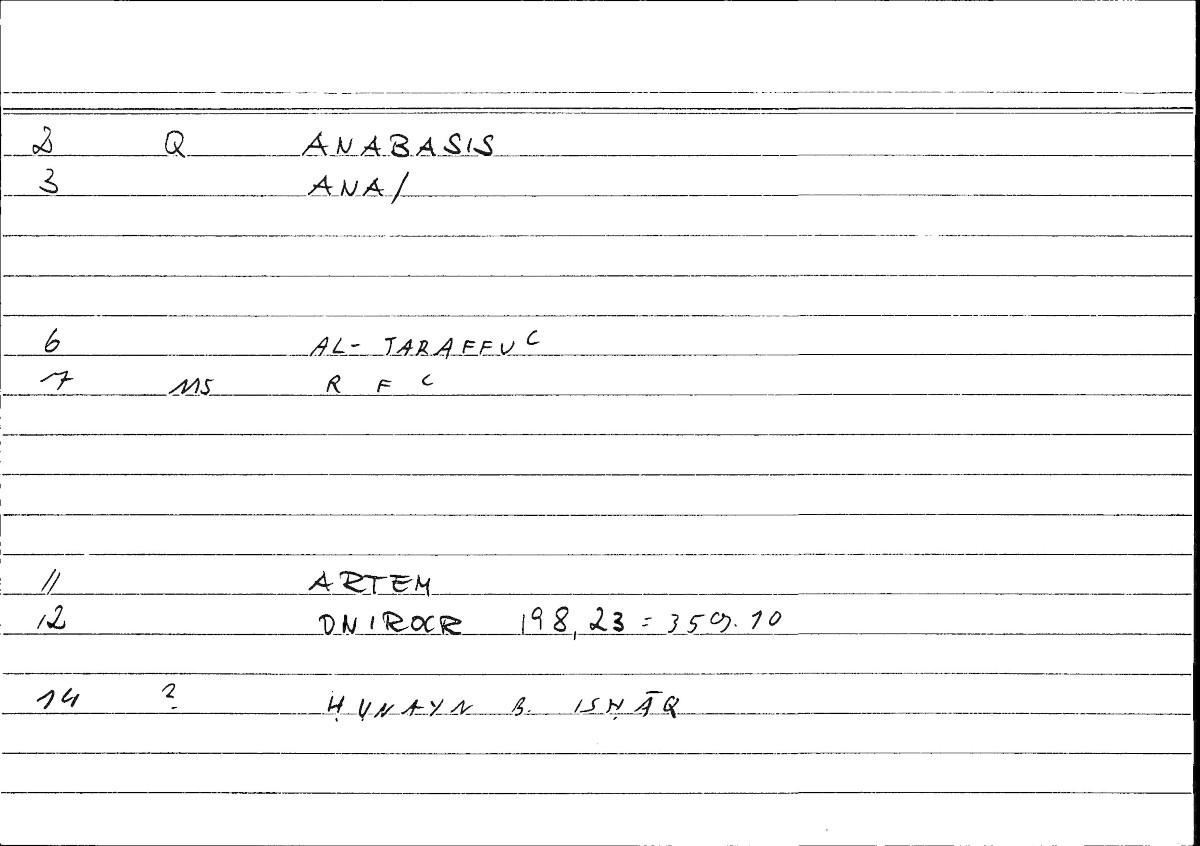 2 Q ANABASIS
3 ANA/
6 AL-TARAFFUʿ
7 MS R F ʿ
11 ARTEM
12 ONIROCR 198,23 = 359.10
14 ? ḤUNAYN B. ISḤĀQ